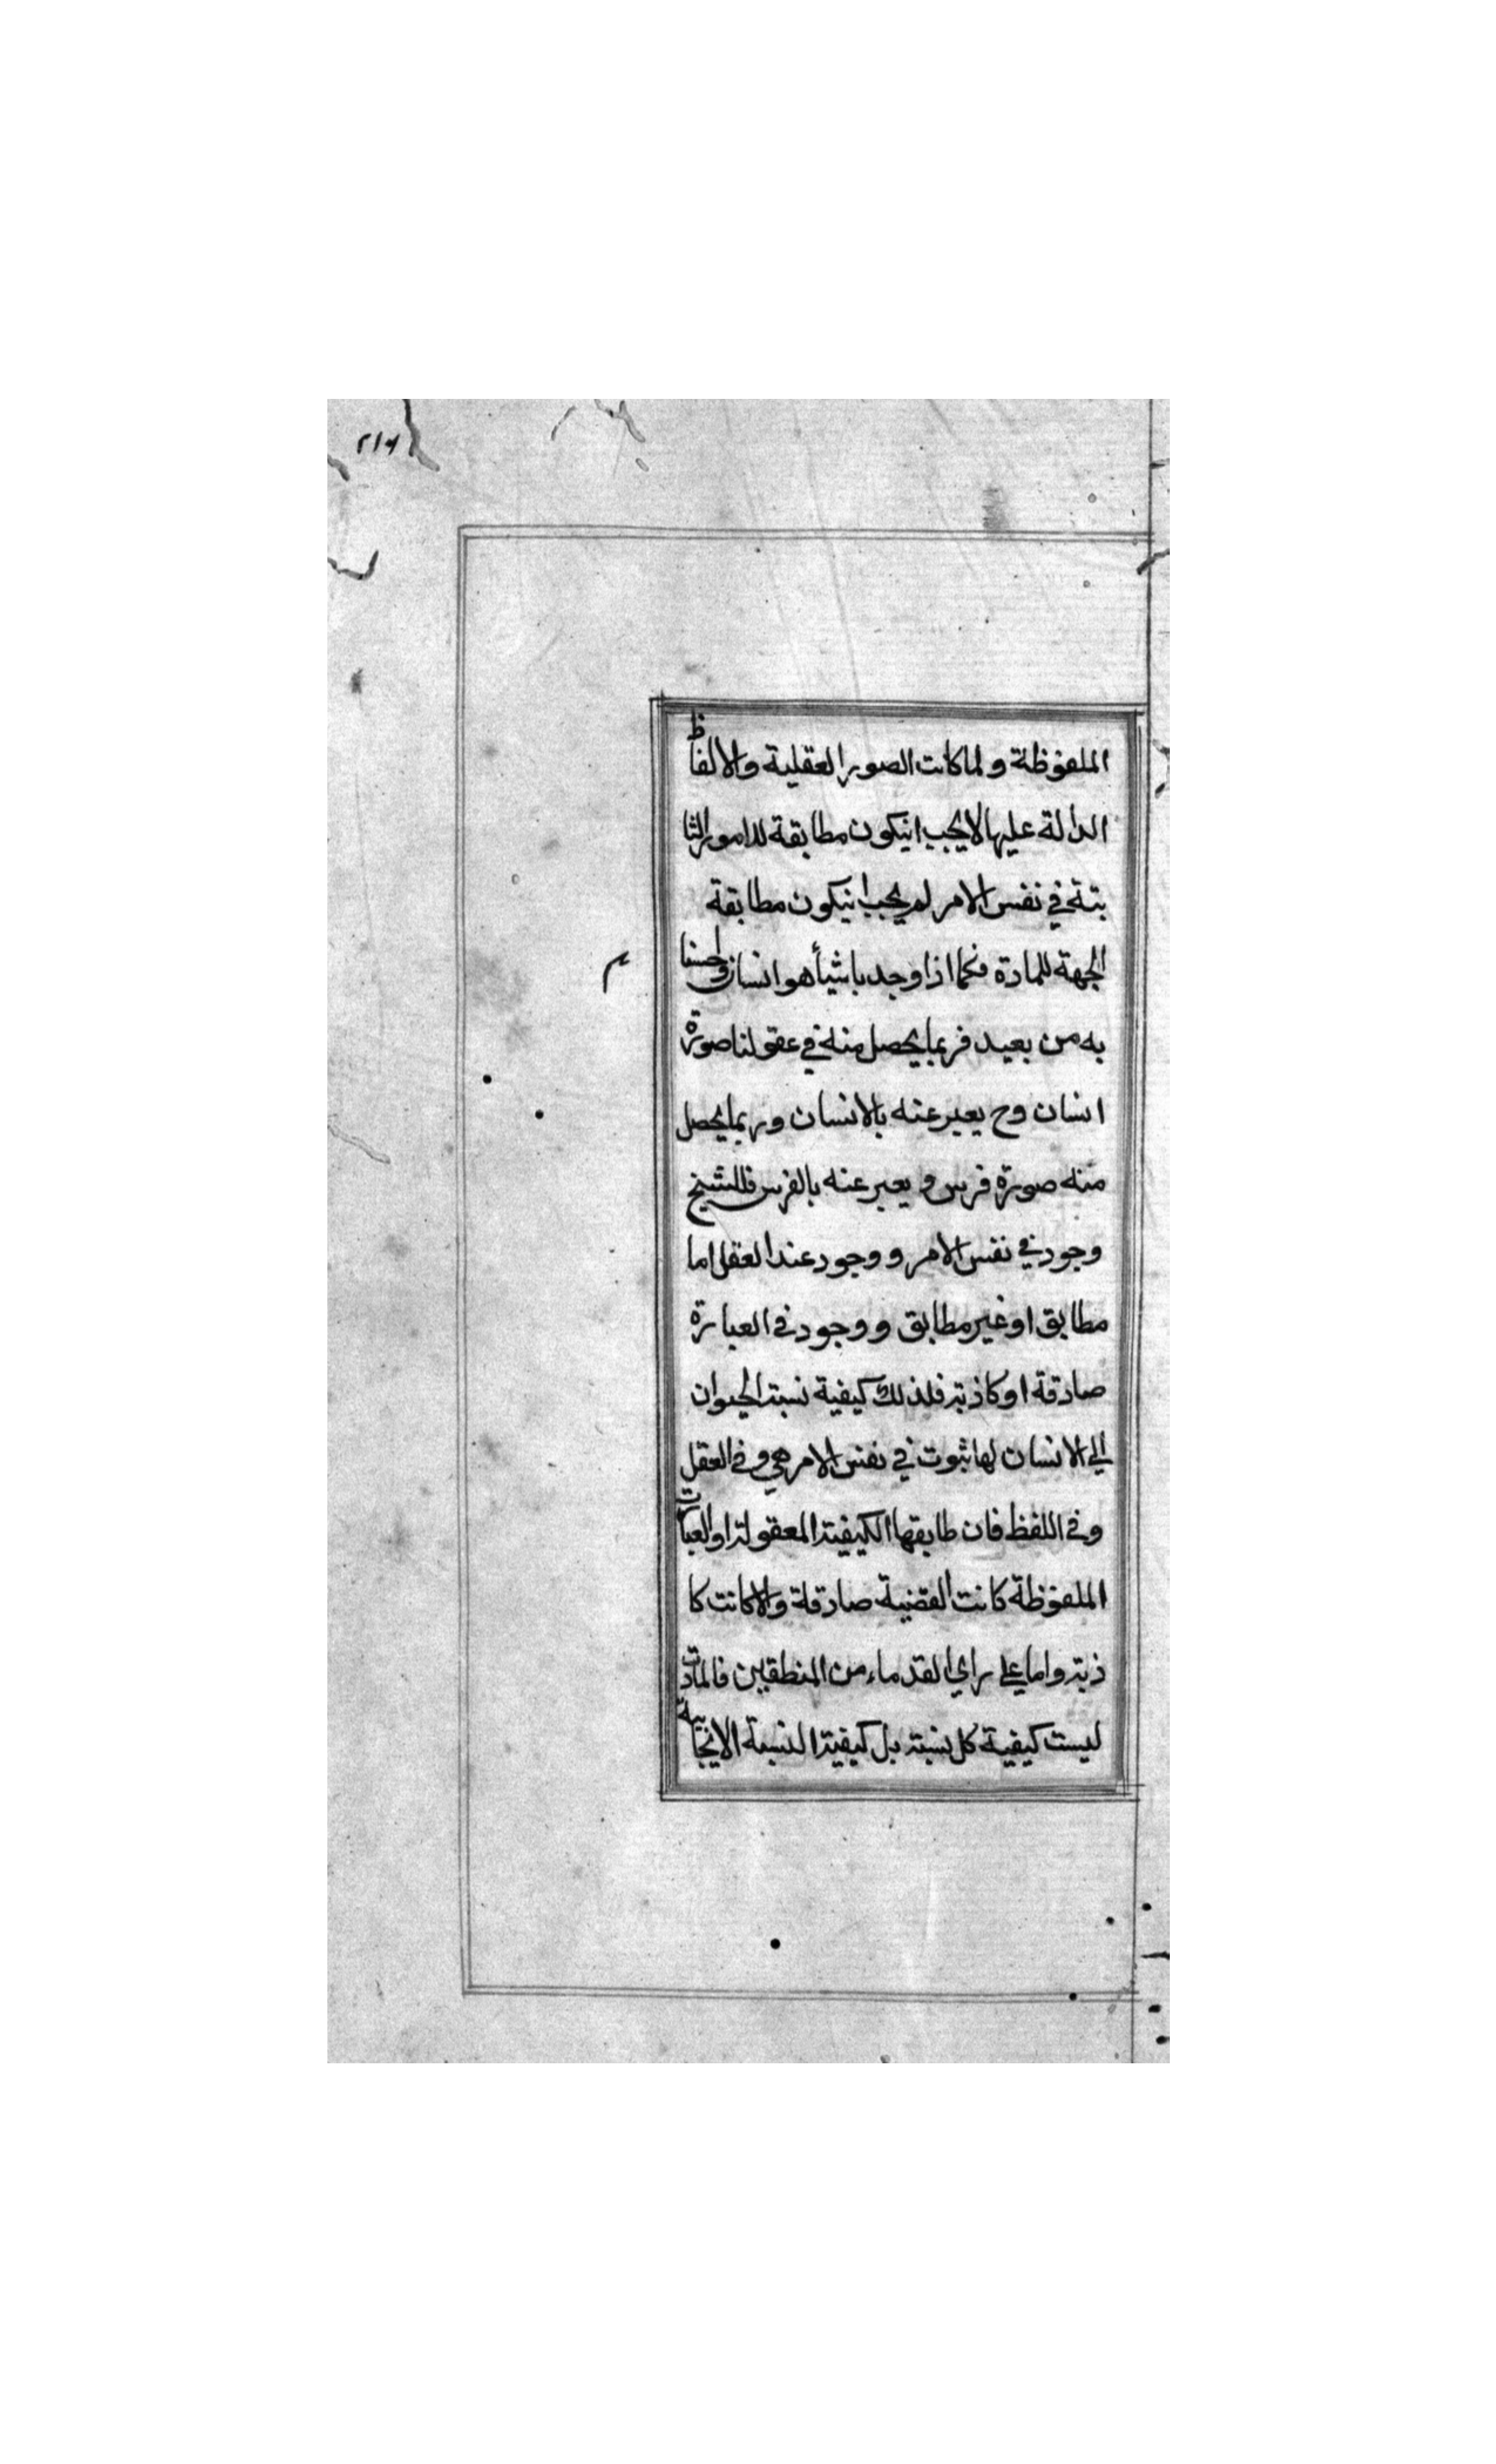 ٢١٦
الملفوظة ولما كانت الصور العقلية والالفاظ
الدالة عليها لا يجب انيكون مطابقة للامور الثا
بتة في نفس الامر لم يجب انيكون مطابقة
الجهة للمادة فكما اذا وجدنا شيأ هو انسان واحسسنا
به من بعيد فربما يحصل منه في عقولنا صورة
انسان وح يعبر عنه بالانسان وربما يحصل
منه صورة فرس و يعبر عنه بالفرس فللشيخ
وجود في نفس الامر و وجود عند العقل اما
مطابق او غير مطابق و وجود في العبارة
صادقة او كاذبة فلذلك كيفية نسبة الحيوان
الى الانسان لها ثبوت في نفس الامر هي و في العقل
وفي اللفظ فان طابقها الكيفية المعقولة او العبارت
الملفوظة كانت القضية صادقة والا كانت كا
ذبة واما على راي القدماء من المنطقيين فالمادة
ليست كيفية كل نسبة بل كيفية النسبة الايجابية